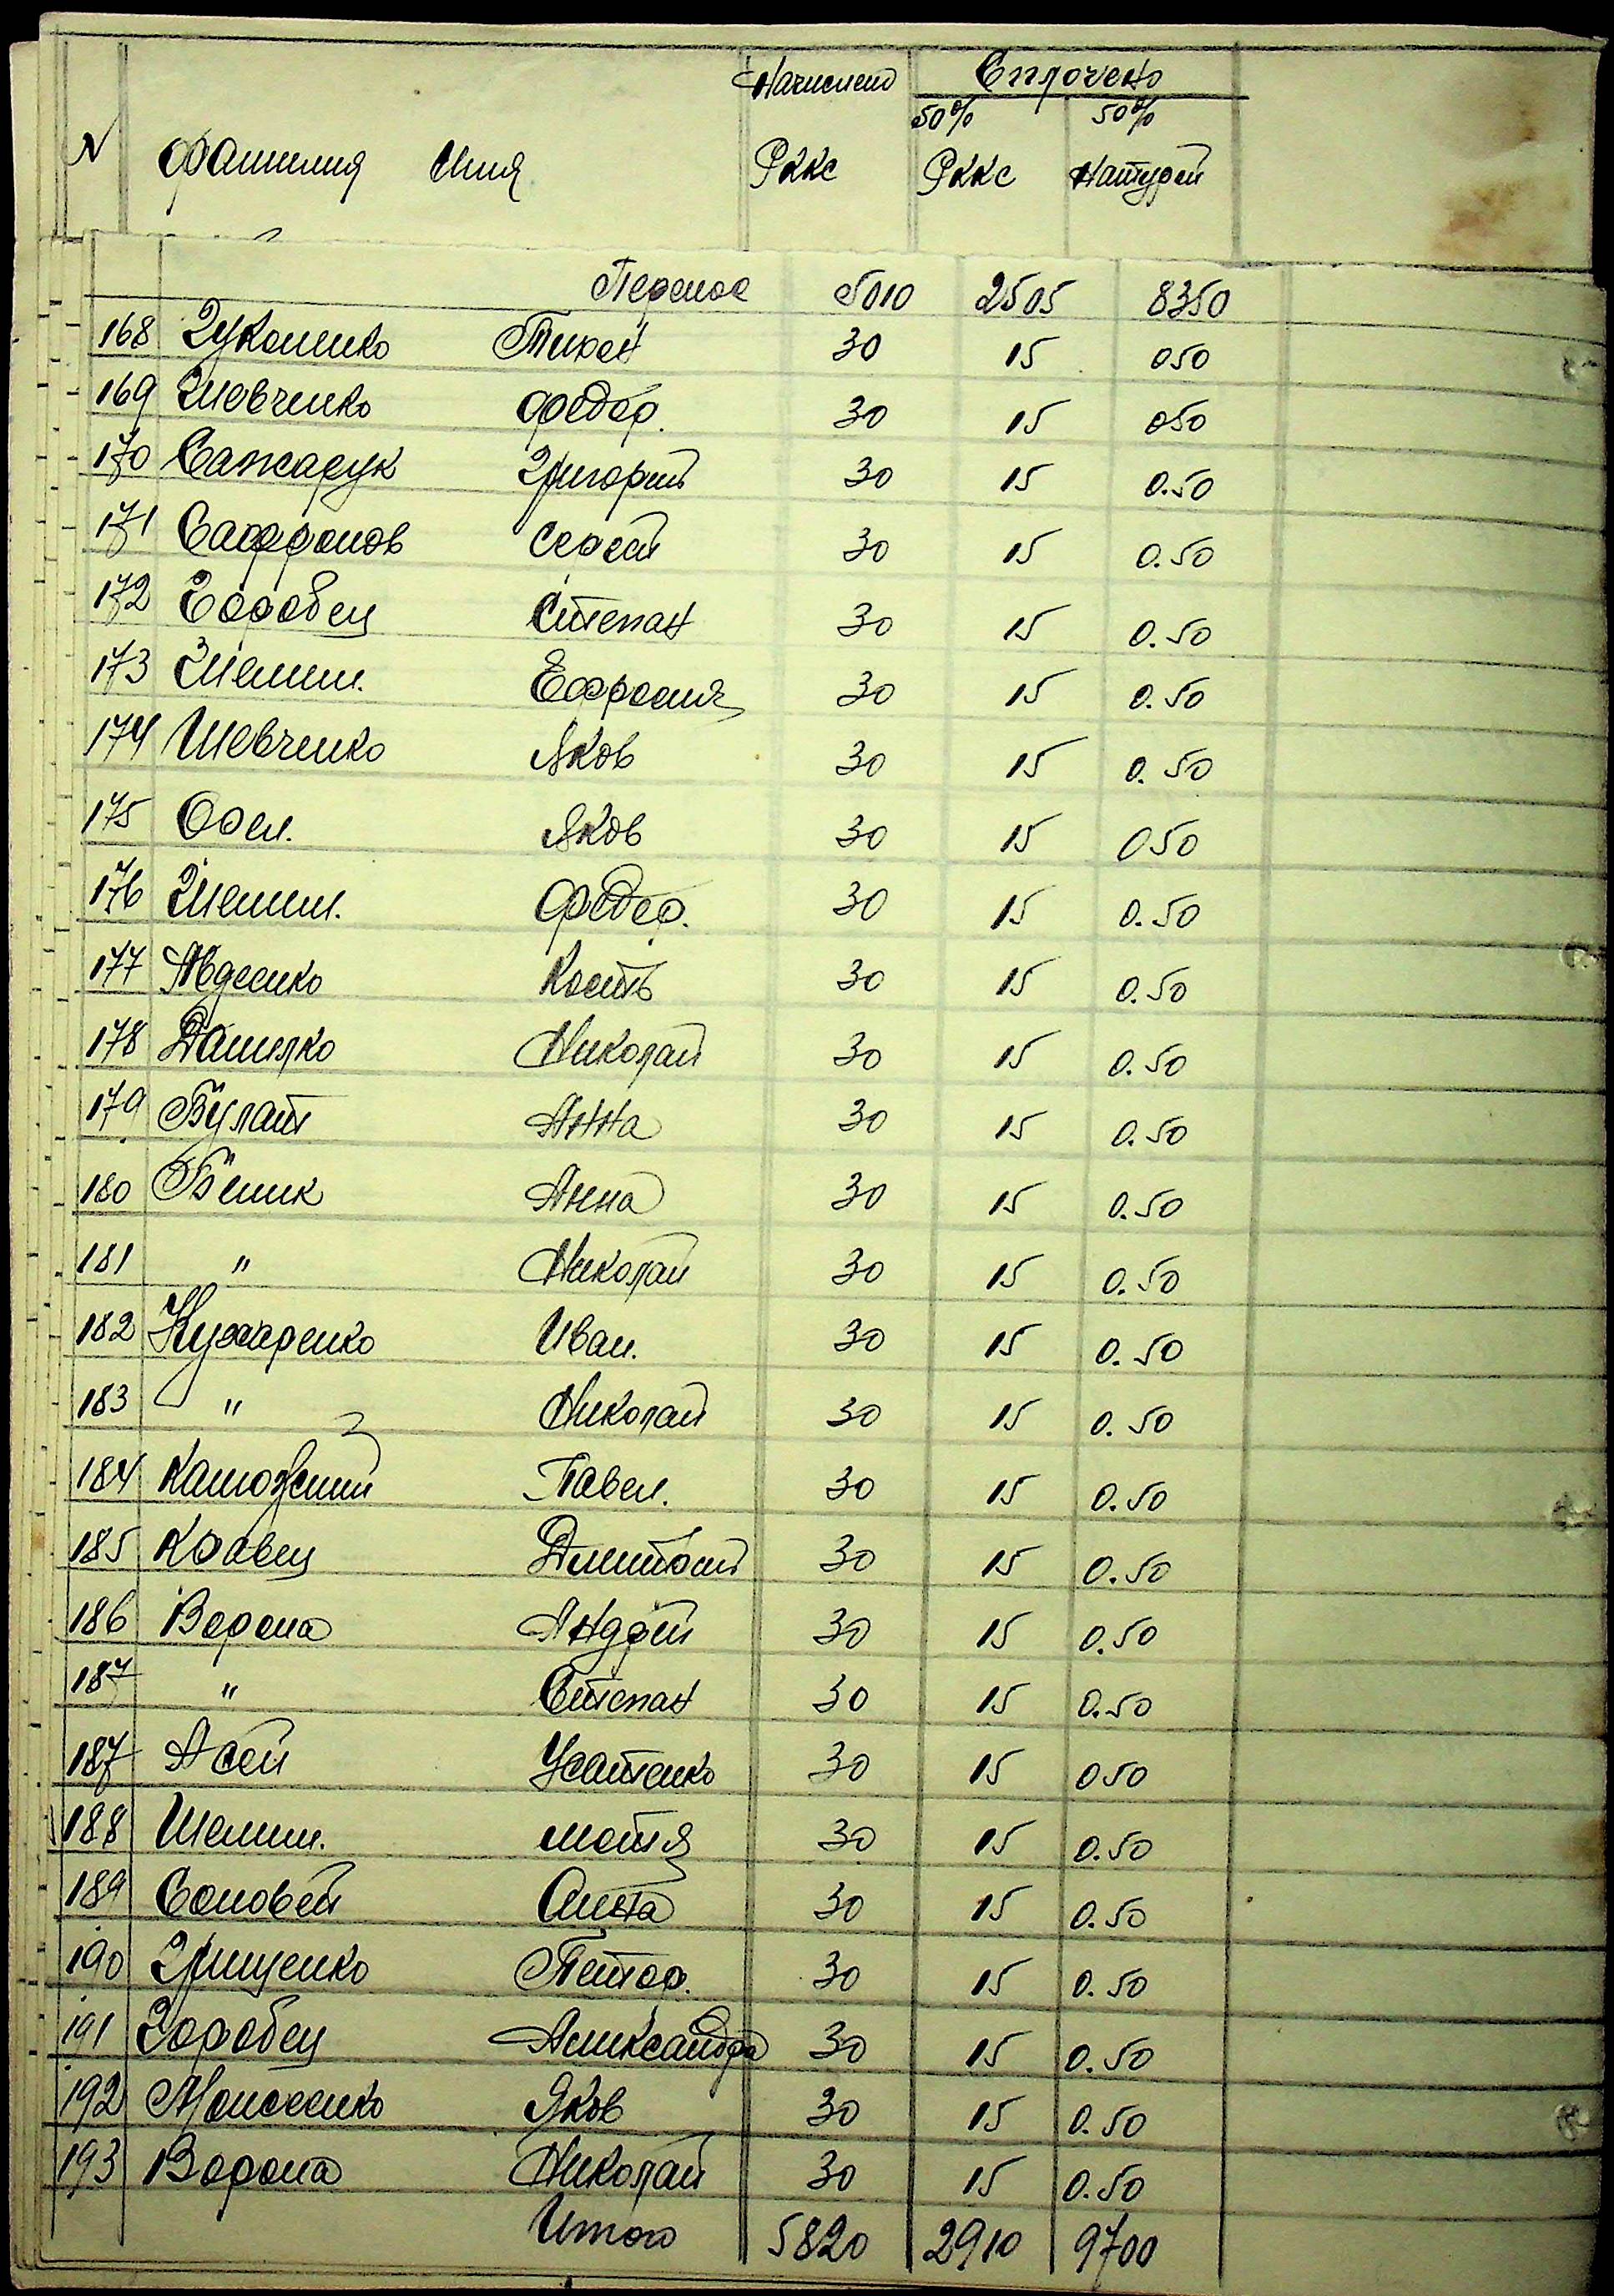 Начислено Сплочено
50% 50%
N Фамилия Имя Рккс Рккс Натурой
Перенос 5010 2505 8350
168 Тихон 30 15 050
169 Шевченко Федор. 30 15 050
170 Сажарук Григорий 30 15 0.50
171 Саффронов Сергей 30 15 0.50
172 Горобец Степан 30 15 0.50
173 Шелип. Ефросия 30 15 0.50
174 Шевченко Яков 30 15 0.50
175 Орел. Яков 30 15 050
176 Шелип. Федор. 30 15 0.50
177 Авдеенко Кость 30 15 0.50
178 Данилко Николай 30 15 0.50
179 Булат Анна 30 15 0.50
180 Беник Анна 30 15 0.50
181 " Николай 30 15 0.50
182 Кухаренко Иван. 30 15 0.50
183 " Николай 30 15 0.50
184 Павел. 30 15 0.50
185 Кравец Дмитрий 30 15 0.50
186 Ворона Андрей 30 15 0.50
187 " Степан 30 15 0.50
187 Асей Усатенко 30 15 050
188 Шелип. мотя 30 15 0.50
189 Соловей Анна 30 15 0.50
190 Грищенко Петор. 30 15 0.50
191 Горобец Александра 30 15 0.50
192 Моисеенко Яков 30 15 0.50
193 Ворона Николай 30 15 0.50
Итого 5820 2910 9700